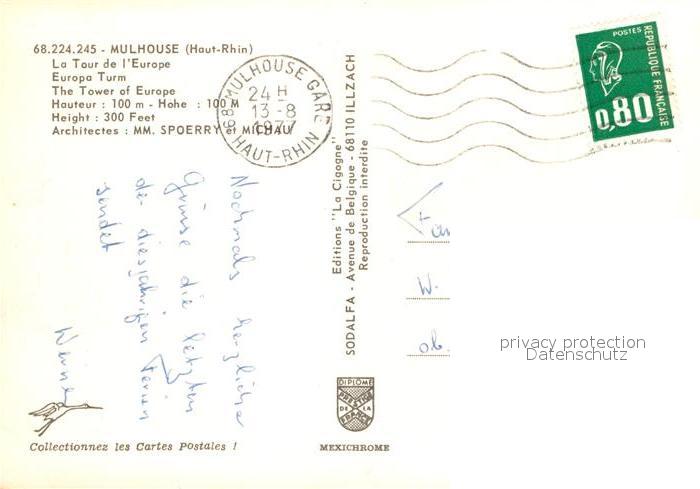 68.224.245 - MULHOUSE (Haut-Rhin)
La Tour de l'Europe
Europa Turm
The Tower of Europe
Hauteur : 100 m - Hohe : 100 M
Height : 300 Feet
Architectes : MM. SPOERRY et MICHAU
68 MULHOUSE GARE
24 H
13-8
1977
HAUT-RHIN
POSTES
REPUBLIQUE FRANÇAISE
0,80
Nochmals herzliche
Grüsse die letzten
de diesjährigen Ferien
sendet
Werner
Editions "La Cigogne"
SODALFA - Avenue de Belgique - 68110 ILLZACH
Reproduction interdite
Fa
W.
ob.
privacy protection
Datenschutz
DIPLOME
PRESTIGE
DE LA
FRANCE
Collectionnez les Cartes Postales !
MEXICHROME